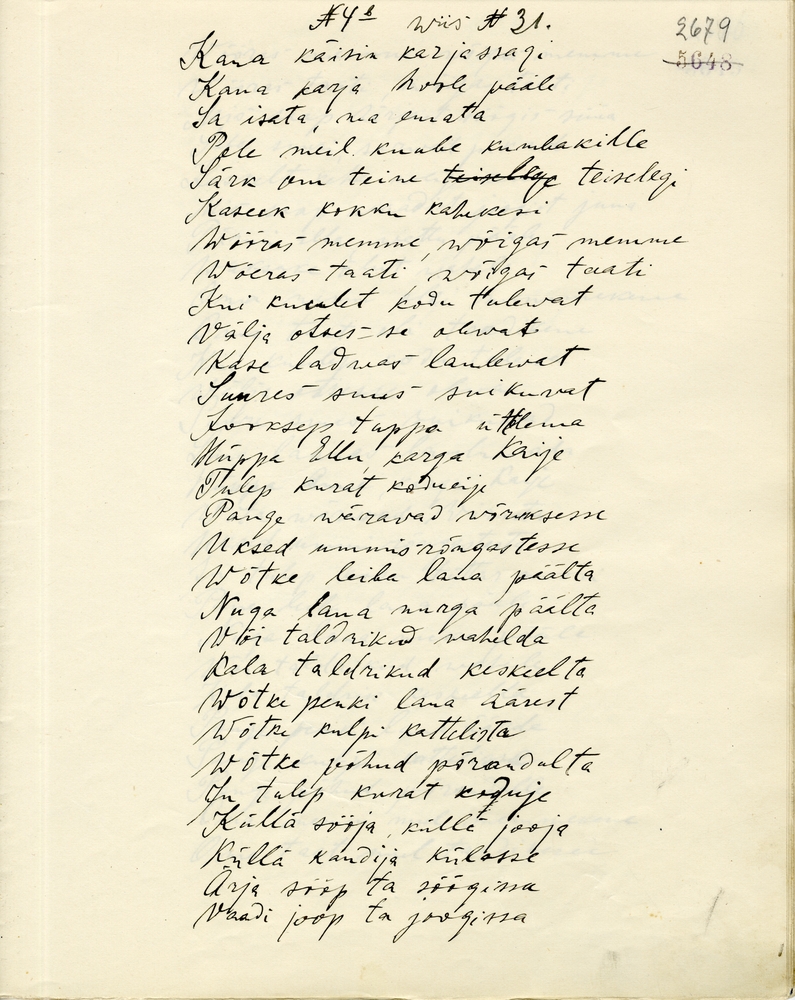 №4b wiis №31.
2679
5648
Kana käisin karjassagi
Kana karja hoole pääle
Sa isata, ma emata
Pole meil kuube kumbakille
Särk om teine teiselegi teiselegi
Kaseek kokku kahekesi
Wõõras memme, wõigas memme
Wõeras taati, wõigas taati
Kui kuulet kodu tulewat
Välja otses se olewat
Kase ladwas laulewat
Suures suus suikuvat
Jooksep tuppa üttlema
Hüppa Ellu, karga Kaije
Tulep kurat kodueije
Pange wäravad wõruksesse
Uksed ummisrõngastesse
Wõtke leiba laua päälta
Nuga laua nurga päälta
Wõi taldrikud wahelda
Kala taldrikud keskeelta
Wõtke penki laua äärest
Wõtke kulpi kattelista
Wõtke põhud põrandalta
Ju tulep kurat koduje
Küllä sööja, küllä jooja
Küllä kandija külasse
Ärja sööp ta söögissa
Vaadi joop ta joogissa